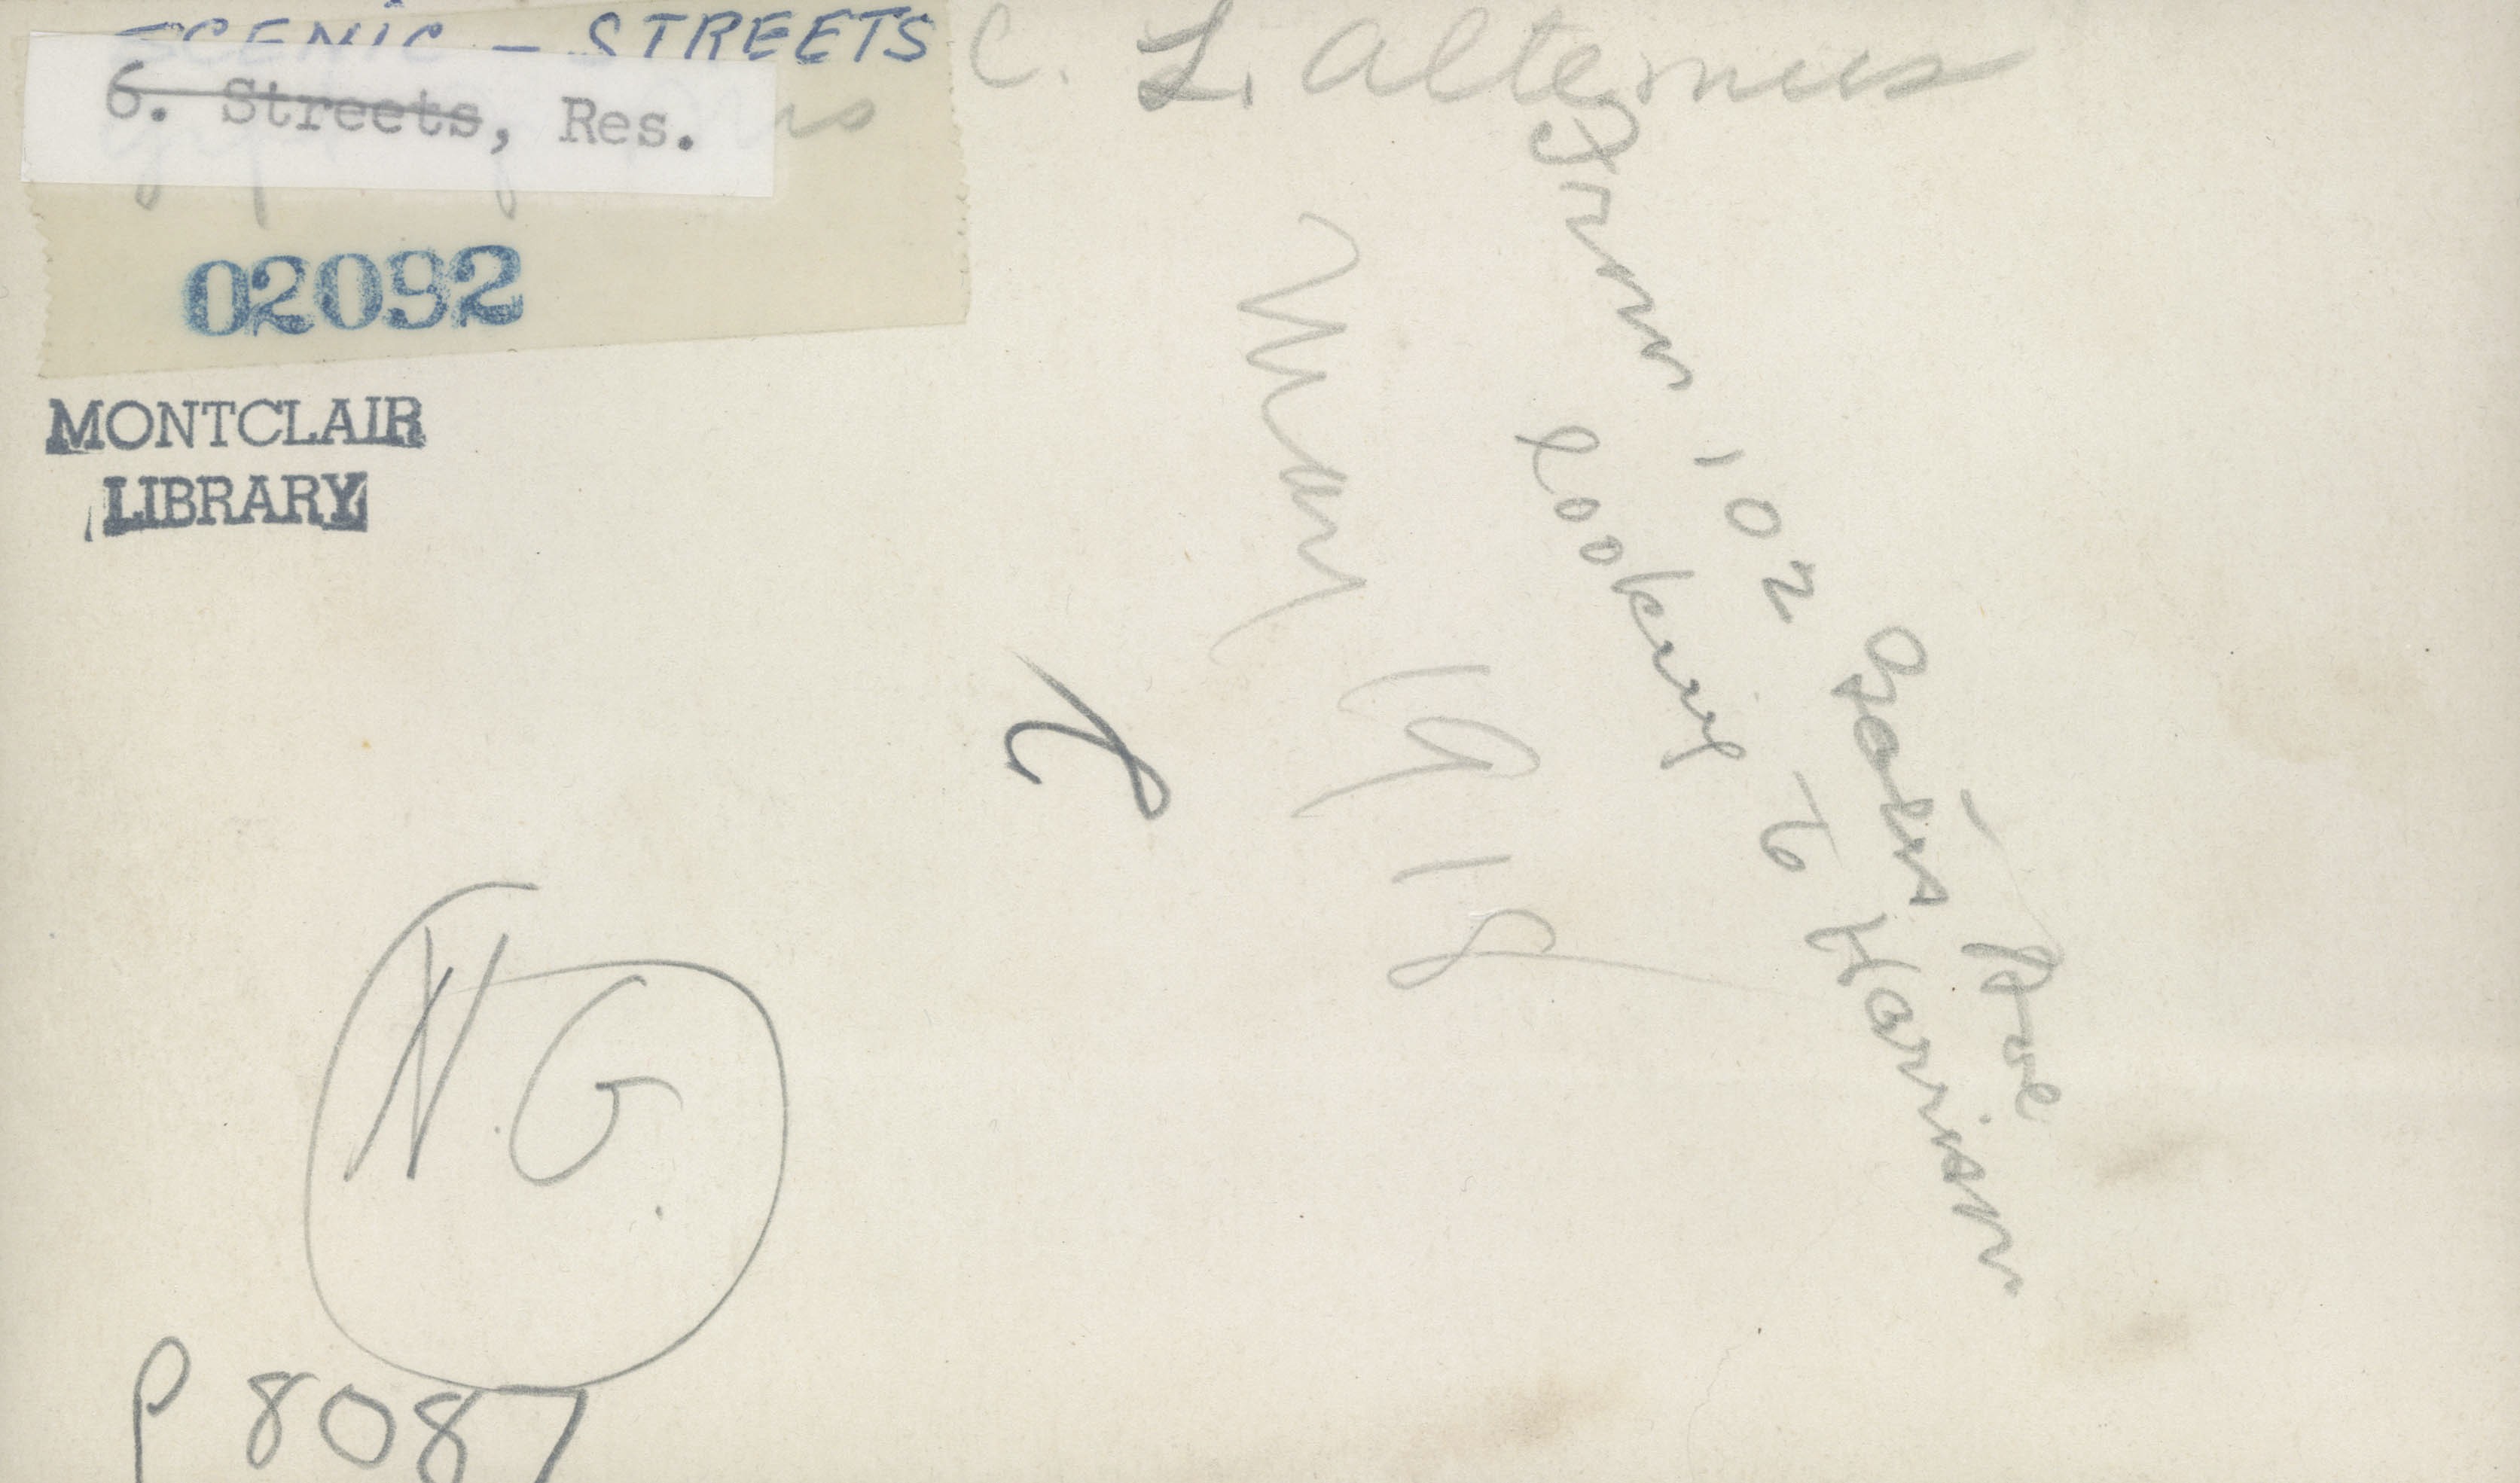 SCENIC - STREETS
C. L. Altemus
6. Streets, Res.
02092
MONTCLAIR
LIBRARY
From 102 Gates Ave
looking to Harrison
May 1918
N.G.
P 8087